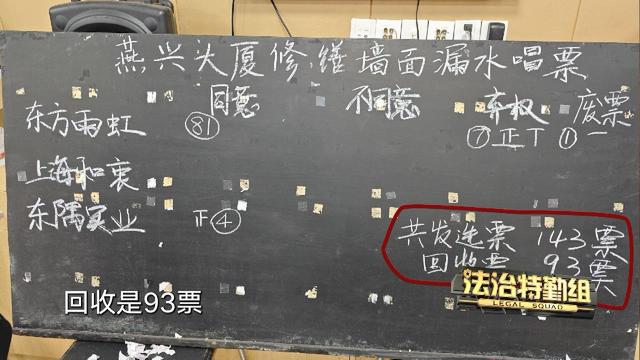 燕兴大厦修缮墙面漏水唱票
同意 不同意 弃权 废票
东方雨虹 81 ⑦正T ① 一
上海和衷
东隅实业 正④
共发选票 143票
回收票 93票
法治特勤组
LEGAL SQUAD
回收是93票